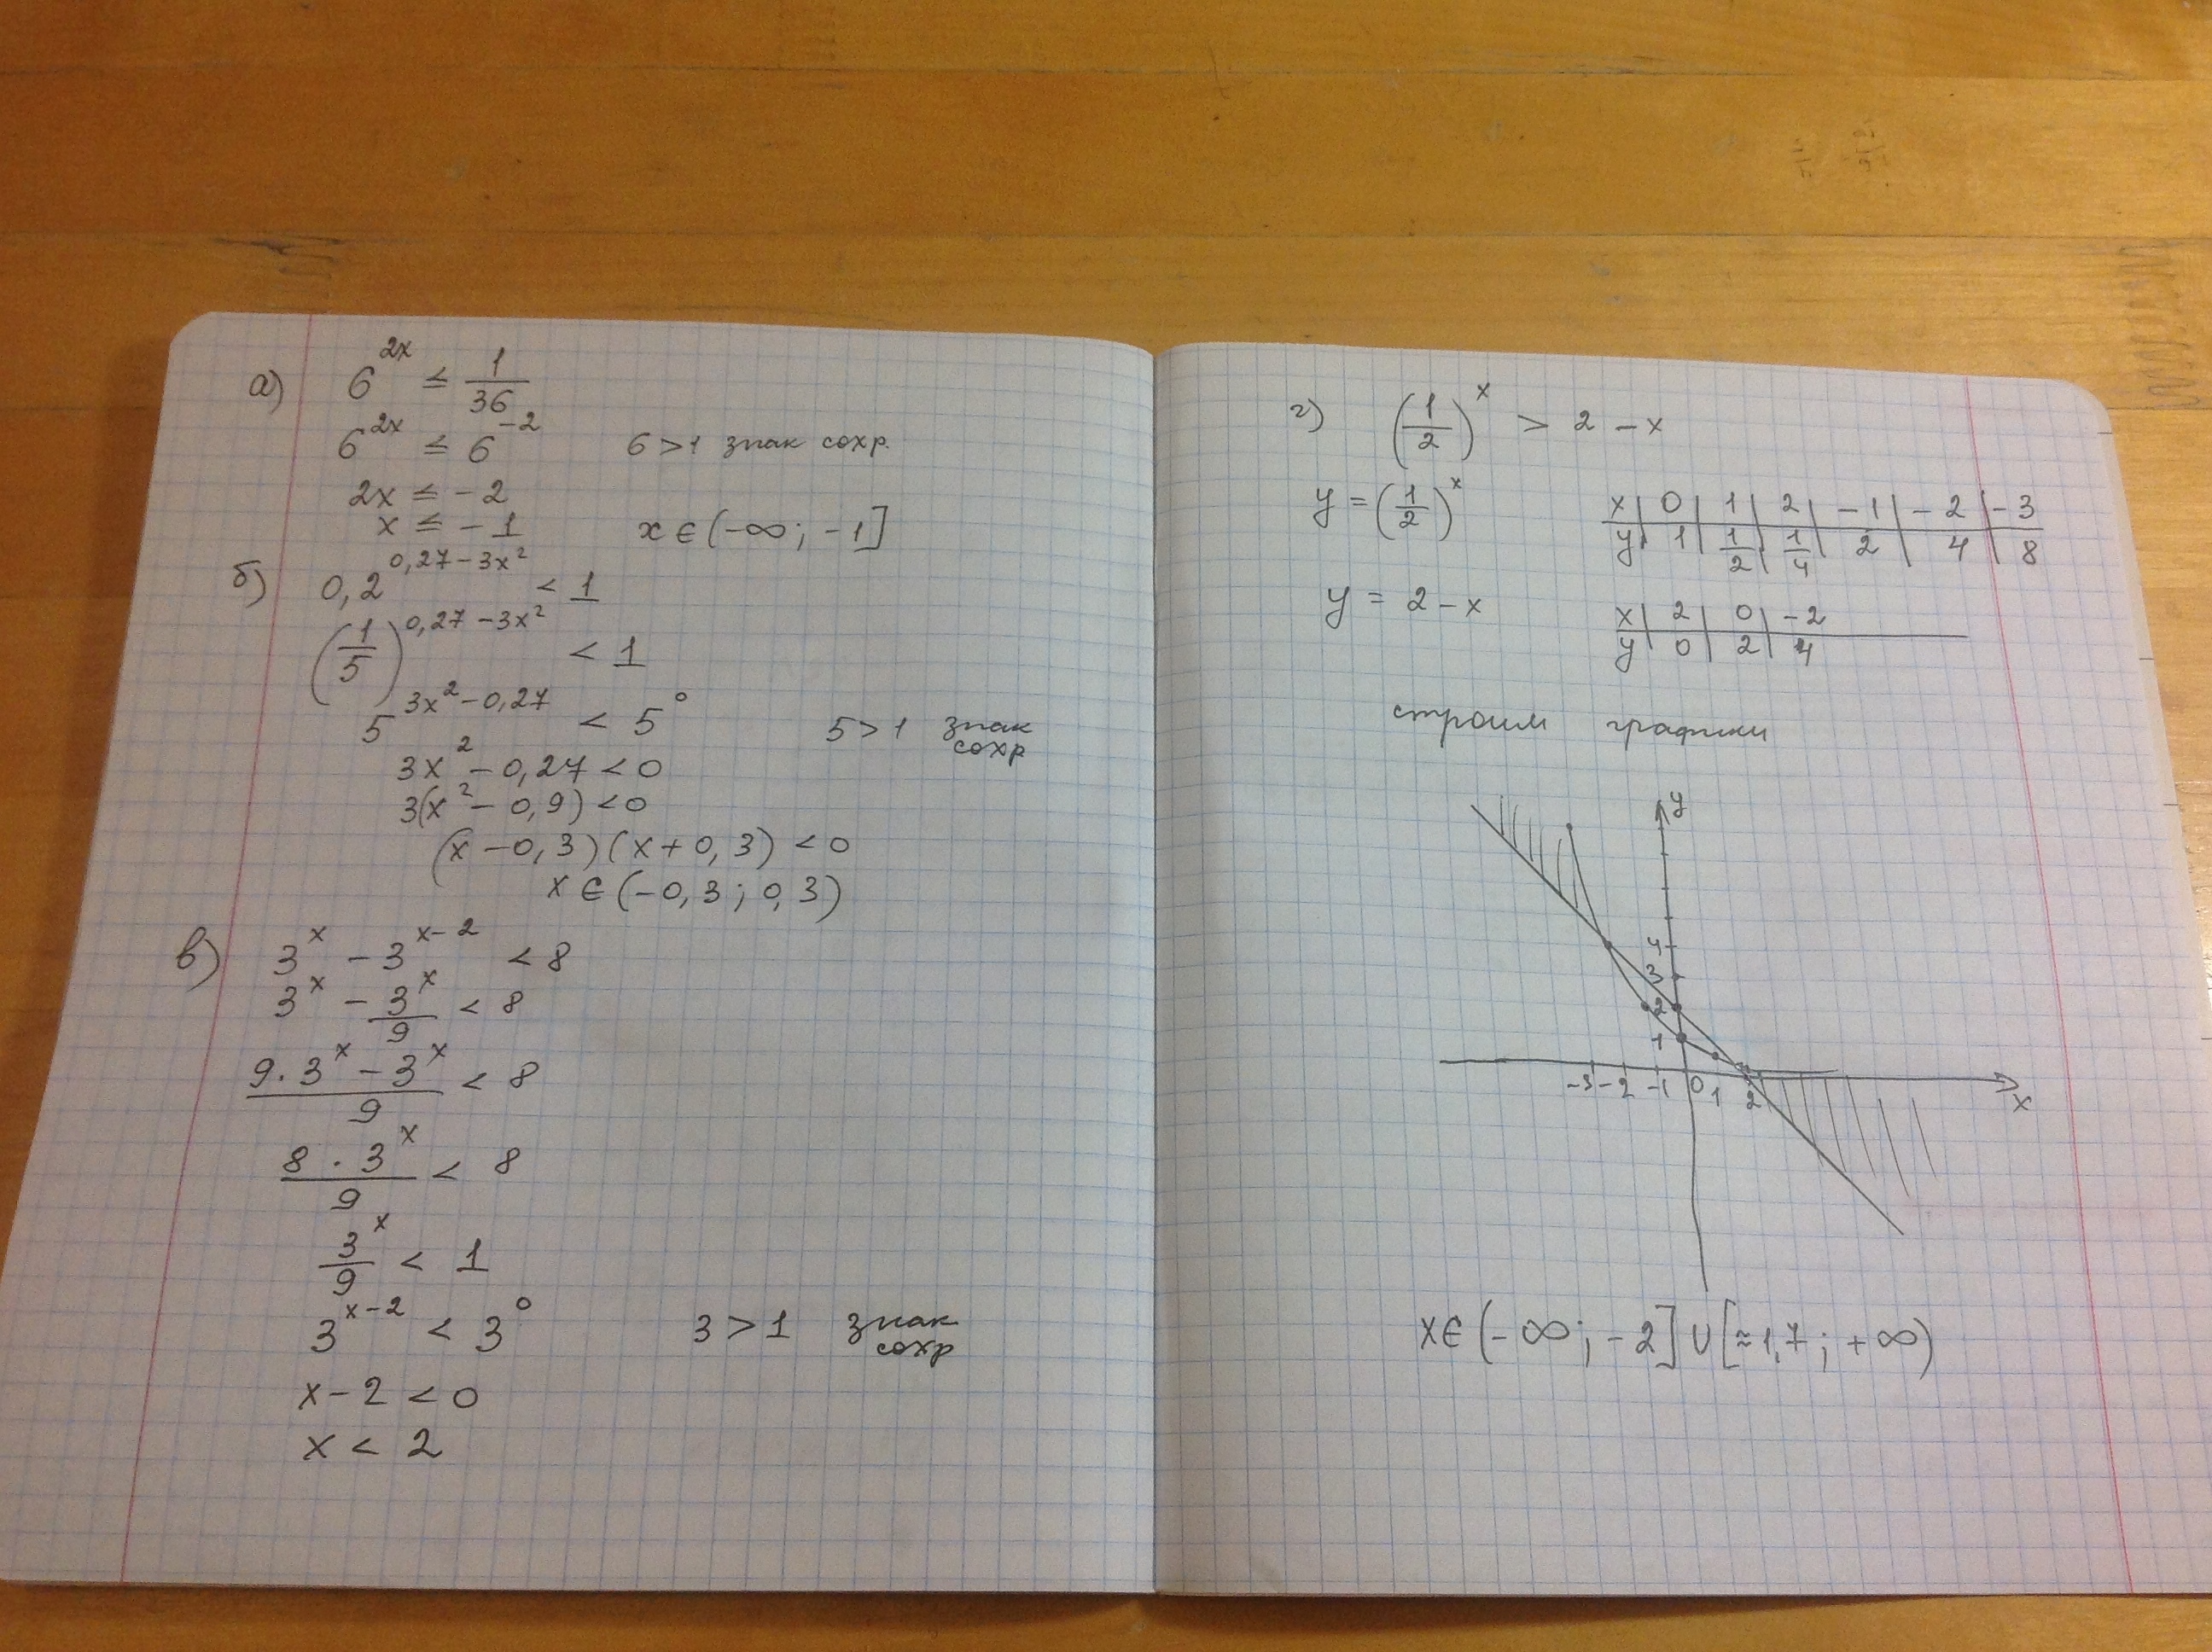 а) 6^{2x} ≤ 1/36
6^{2x} ≤ 6^{-2} 6>1 знак сохр.
2x ≤ -2
x ≤ -1 x ∈ (-∞; -1]
б) 0,2^{0,27-3x²} < 1
(1/5)^{0,27-3x²} < 1
5^{3x²-0,27} < 5⁰ 5>1 знак сохр
3x² - 0,27 < 0
3(x² - 0,9) < 0
(x - 0,3)(x + 0,3) < 0
x ∈ (-0,3; 0,3)
в) 3^x - 3^{x-2} < 8
3^x - 3^x/9 < 8
(9·3^x - 3^x)/9 < 8
(8·3^x)/9 < 8
3^x/9 < 1
3^{x-2} < 3⁰ 3>1 знак сохр
x - 2 < 0
x < 2
г) (1/2)^x > 2 - x
y = (1/2)^x
x | 0 | 1 | 2 | -1 | -2 | -3
y | 1 | 1/2 | 1/4 | 2 | 4 | 8
y = 2 - x
x | 2 | 0 | -2
y | 0 | 2 | 4
строим графики
y
4
3
2
1
-3 -2 -1 0 1 2 x
x ∈ (-∞; -2] ∪ [≈1,7; +∞)